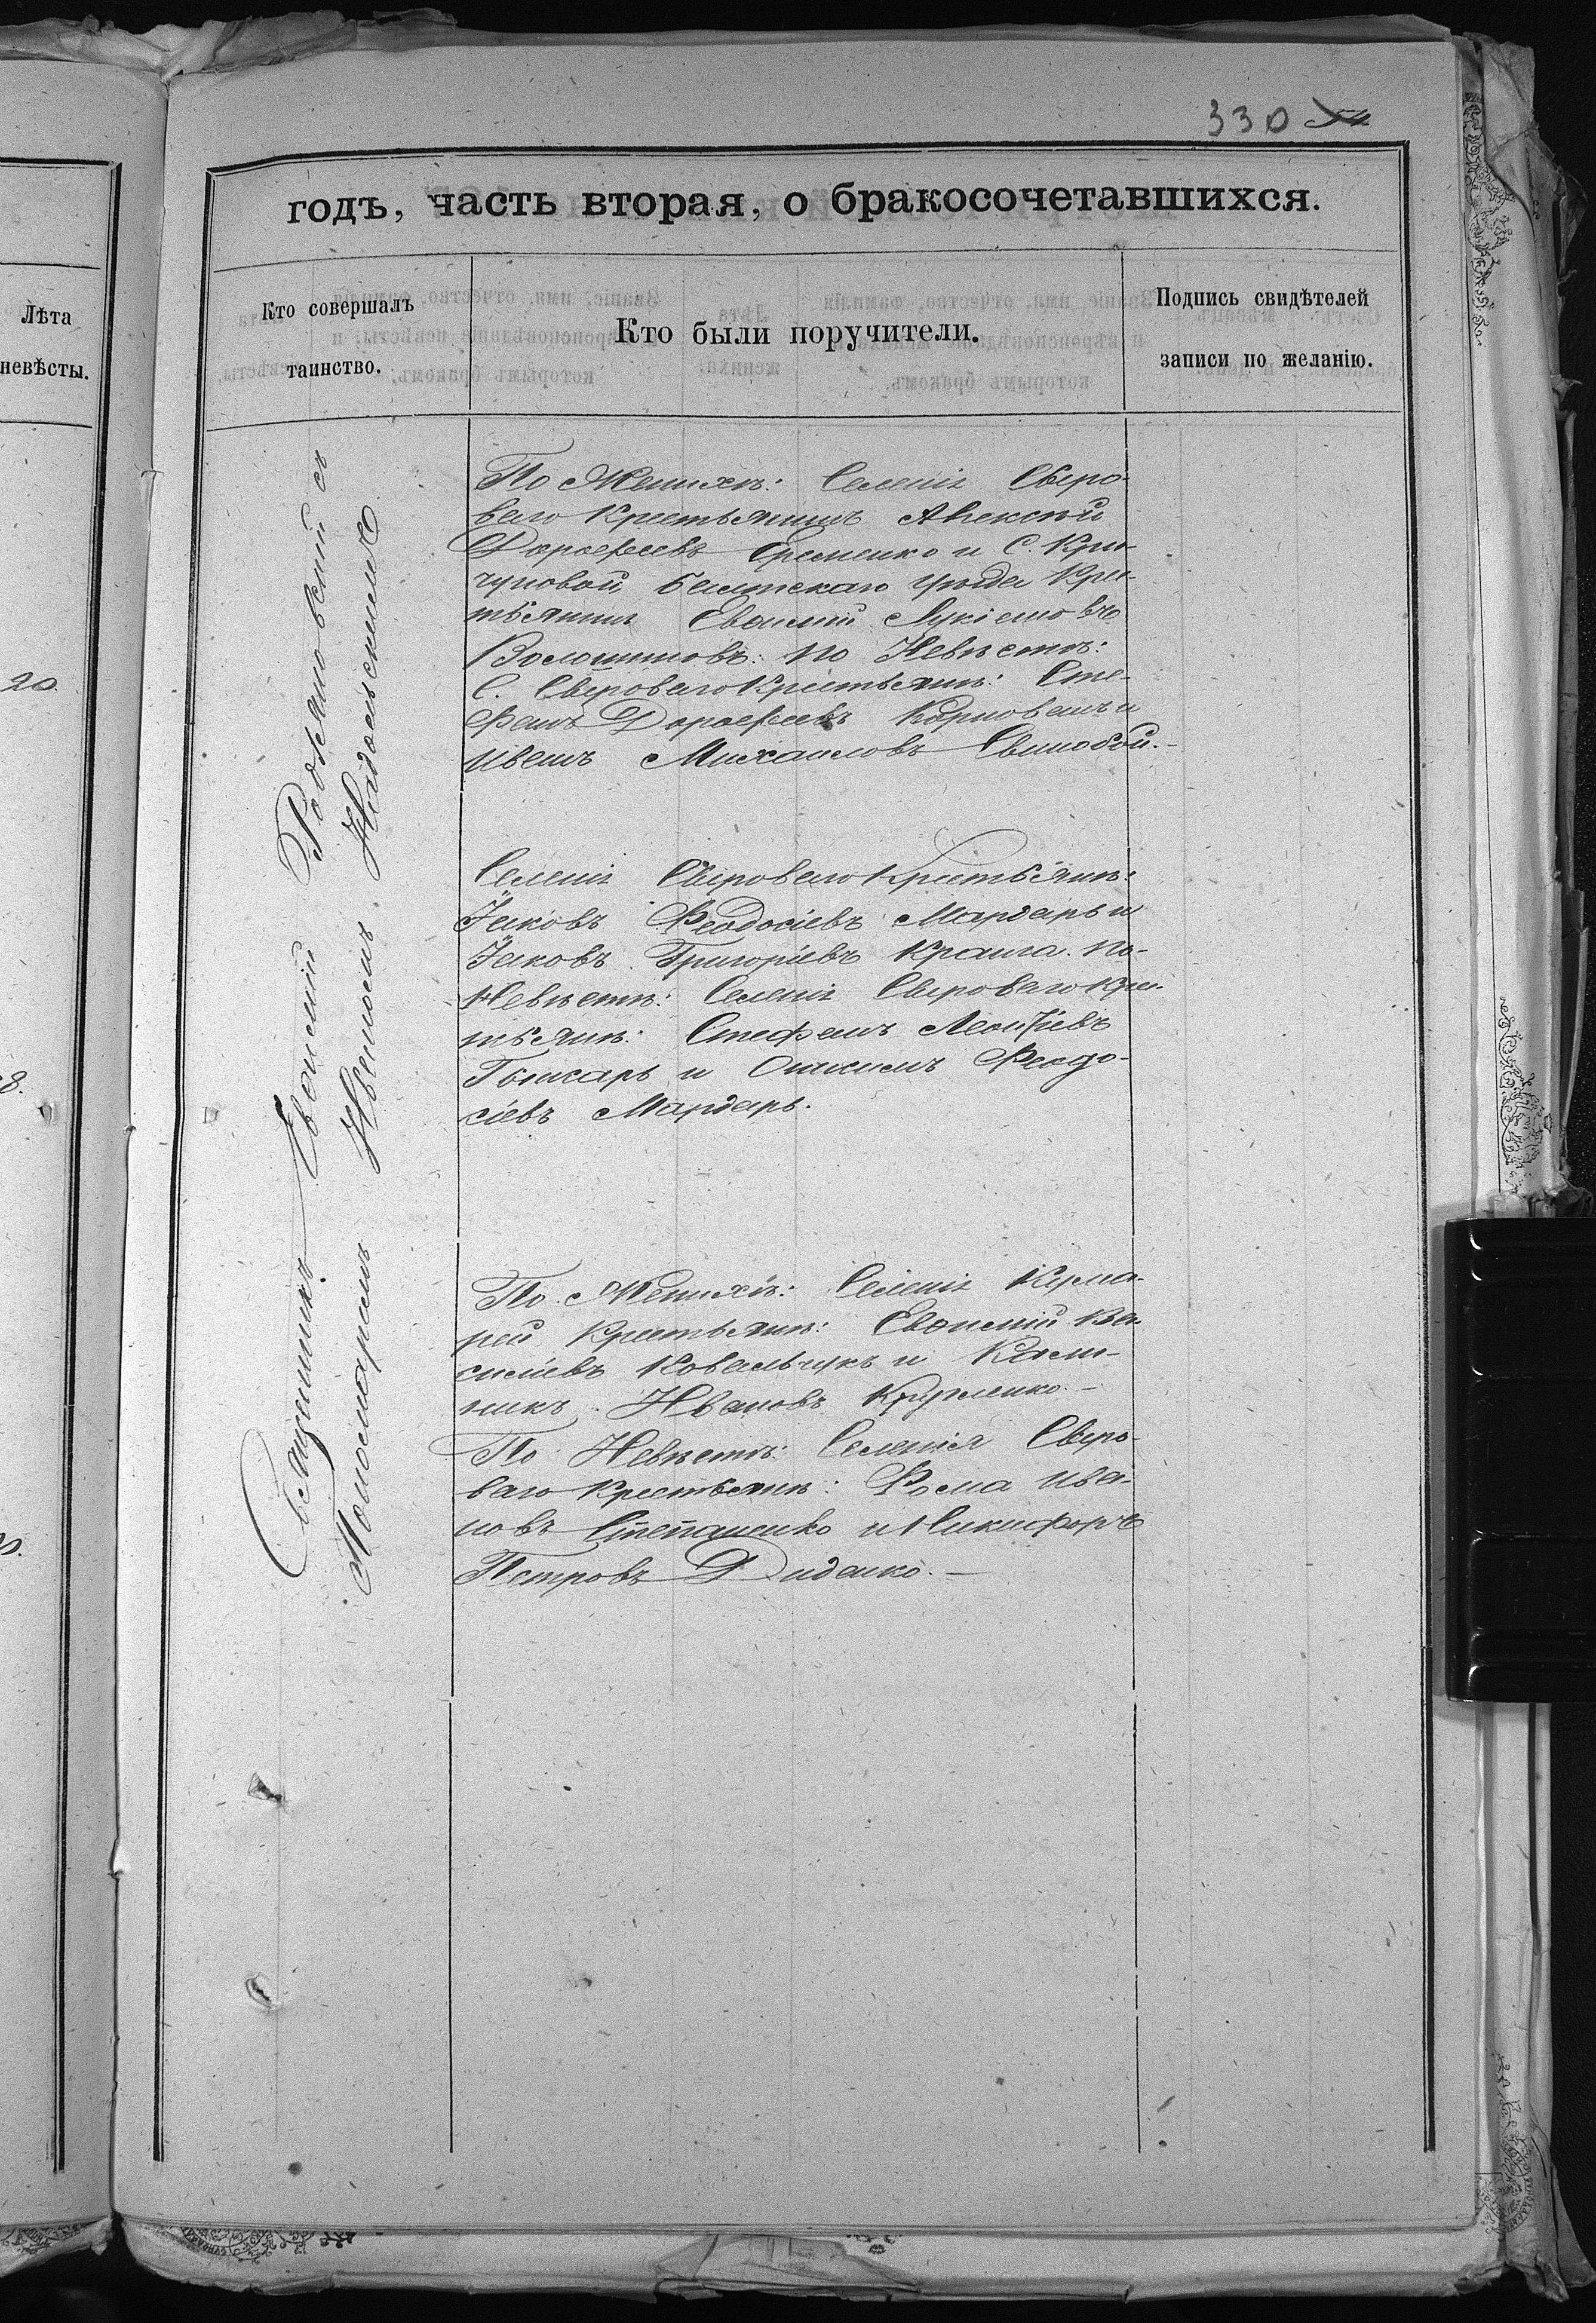 330
Лѣта
невѣсты.
20.
годъ, часть вторая, о бракосочетавшихся.
Кто совершалъ
таинство.
Кто были поручители.
Подпись свидѣтелей
записи по желанію.
Священникъ Евѳимій Подъяновскій съ
Пономаремъ Иваномъ
По Женихѣ: Селенія Сыро-
ваго Крестьянинъ Алексѣй
Дороѳеевъ Еременко и С. Кри-
чуновой, Балтскаго уѣзда Крес-
тьянинъ Евѳимій Лукіановъ
Волошиновъ: по Невѣстѣ:
С. Сыроваго Крестьяне: Сте-
фанъ Дороѳеевъ Корнованъ и
Иванъ Михаиловъ Свинобой.-
Селенія Сыроваго Крестьяне:
Іаковъ Ѳеодосіевъ Мардарь и
Іаковъ Григоріевъ по-
Невѣстѣ: Селенія Сыроваго Крес-
тьяне: Стефанъ Леонтіевъ
и Онисимъ Ѳеодо-
сіевъ Мардарь.
По Женихѣ: Селенія Кума-
рей Крестьяне: Евѳимій Ва-
силіевъ Ковальчукъ и Кали-
никъ Ивановъ -
По Невѣстѣ: Селенія Сыро-
ваго Крестьяне: Ѳома Ива-
новъ Степаненко и Никифоръ
Петровъ Диденко.-